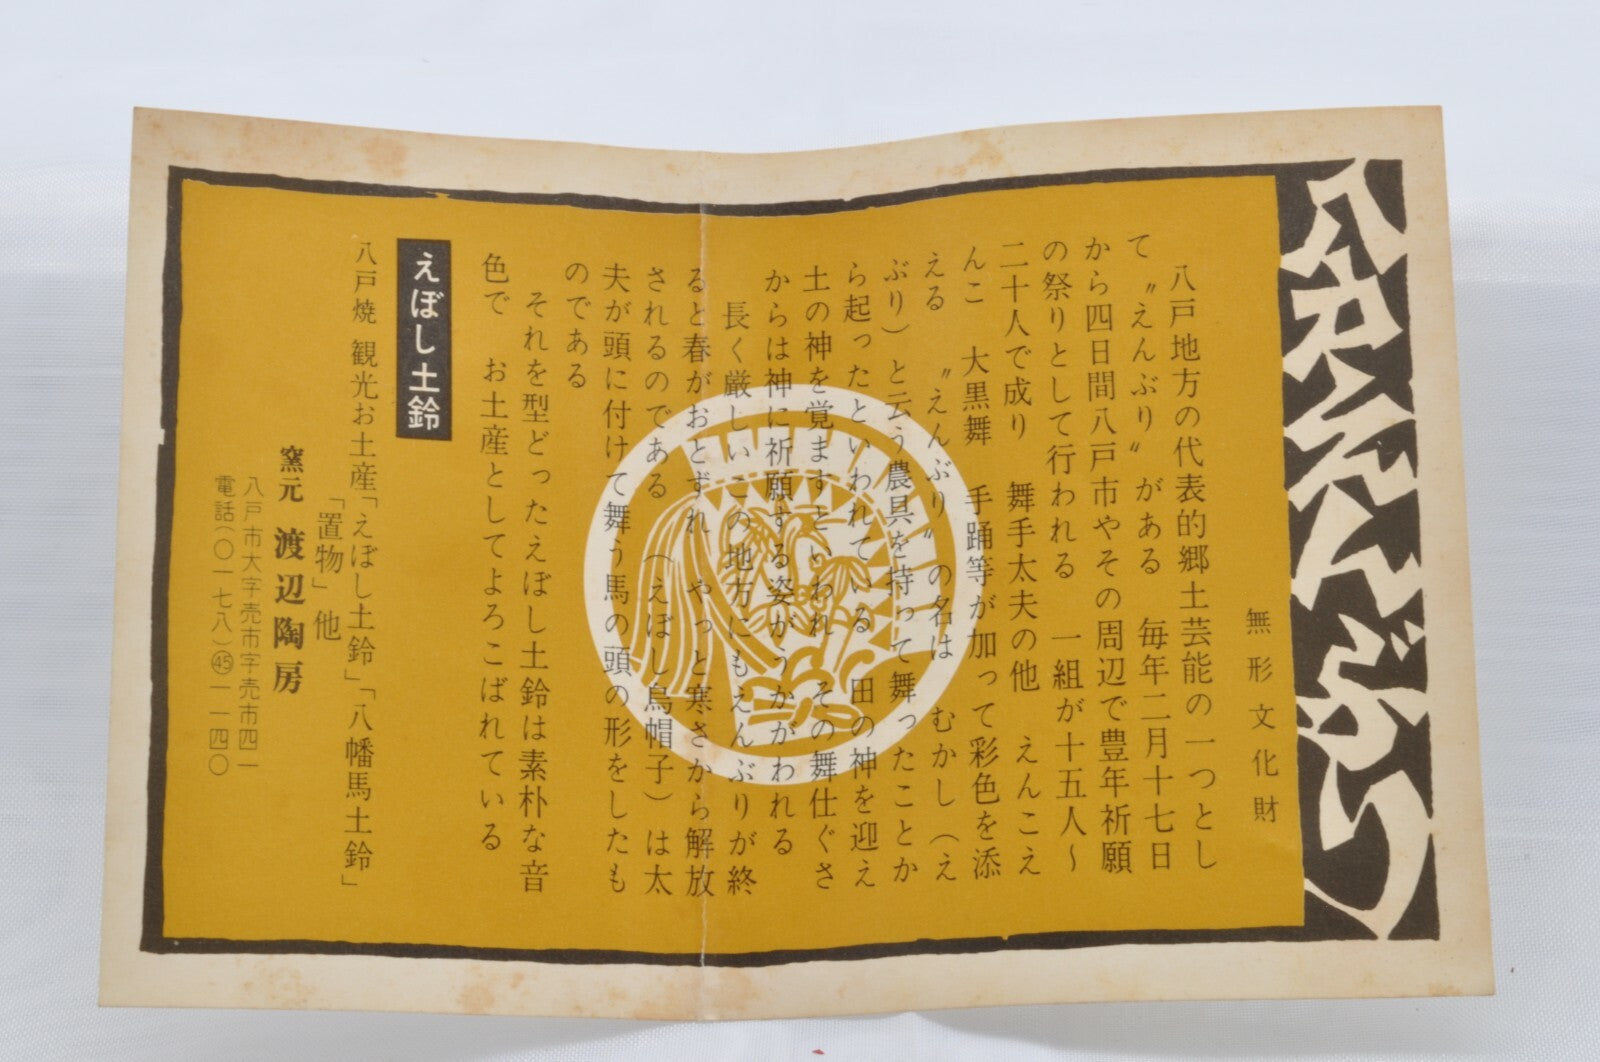 八戸えんぶり
無形文化財
八戸地方の代表的郷土芸能の一つとし
て〝えんぶり〟がある　毎年二月十七日
から四日間八戸市やその周辺で豊年祈願
の祭りとして行われる　一組が十五人〜
二十人で成り　舞手太夫の他　えんこえ
んこ　大黒舞　手踊等が加って彩色を添
える　〝えんぶり〟の名は　むかし（え
ぶり）と云う農具を持って舞ったことか
ら起ったといわれている　田の神を迎え
土の神を覚ますといわれ　その舞仕ぐさ
からは神に祈願する姿がうかがわれる
長く厳しいこの地方にもえんぶりが終
ると春がおとずれ　やっと寒さから解放
されるのである　（えぼし烏帽子）は太
夫が頭に付けて舞う馬の頭の形をしたも
のである
それを型どったえぼし土鈴は素朴な音
色で　お土産としてよろこばれている
えぼし土鈴
八戸焼　観光お土産「えぼし土鈴」「八幡馬土鈴」
「置物」他
窯元　渡辺陶房
八戸市大字売市字売市四一
電話（〇一七八）㊺一一四〇